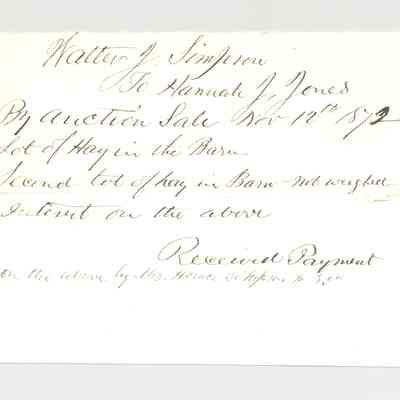 Walter J. Simpson
To Hannah J. Jones
By Auction Sale Nov 12th 1872
Lot of Hay in the Barn
Second Lot of hay in Barn - not weighed
Interest on the above
Received Payment
on the above by Mrs.